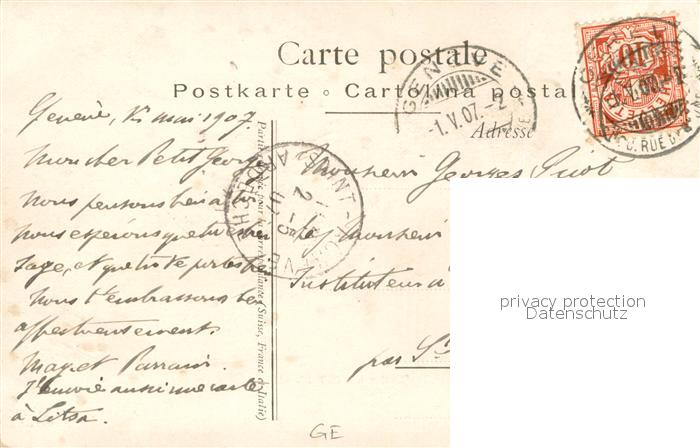 Carte postale
Postkarte ° Cartolina posta
GENÈVE
-1.V.07.-2
Adresse
Genève, 1er mai 1907
Mon cher Petit Georges
Nous pensons bien à
nous espérons que tu es bien
sage, et que tu te portes bien
Nous t'embrassons bien
affectueusement.
May et Parrain.
J'envoie aussi une carte
à Litsa.
Monsieur Georges
c/ Monsieur
Instituteur à
par St
Partie réservée pour la correspondance (Suisse, France et Italie)
GE
privacy protection
Datenschutz